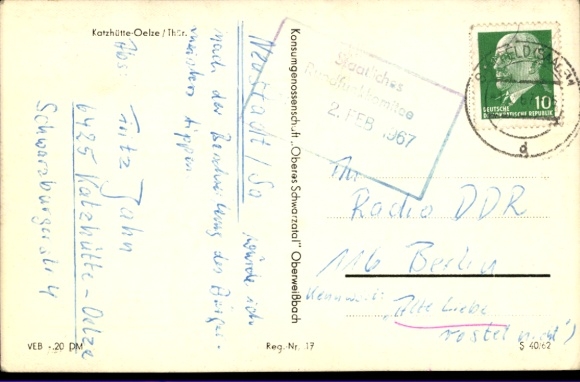 Katzhütte-Oelze / Thür.
Neustadt / Sa
würde ich
nach der Beschreibung des Bürger-
meisters tippen
Abs Fritz Jahn
6425 Katzhütte-Oelze
Schwarzburgerstr 4
VEB -,20 DM
Konsumgenossenschaft „Oberes Schwarzatal" Oberweißbach
Reg.-Nr. 17
Staatliches
Rundfunkkomitee
2. FEB. 1967
DEUTSCHE
DEMOKRATISCHE REPUBLIK
10
d
An
Radio DDR
116 Berlin
Kennwort:
„Alte Liebe
rostet nicht"
S 40/62